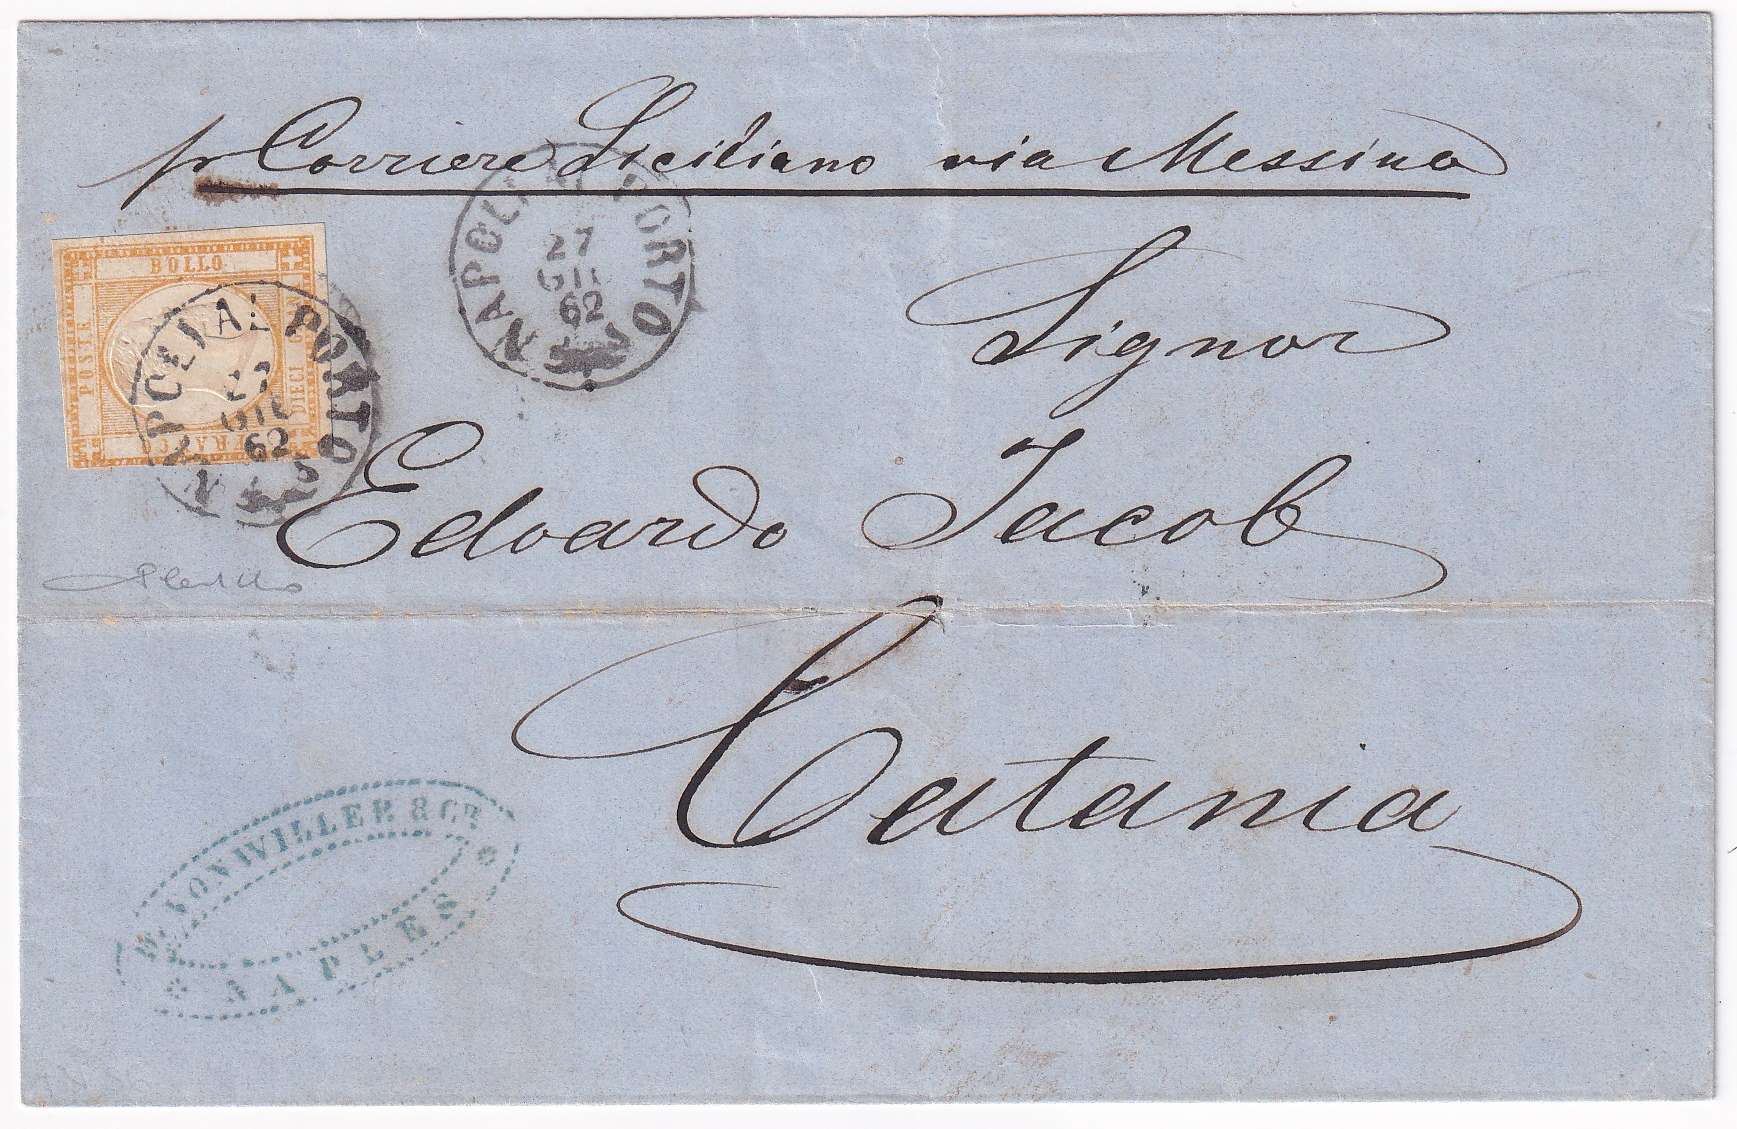 pr Corriere Siciliano via Messina
NAPOLI AL PORTO
27
GIU
62
BOLLO
POSTE
DIECI
GRANA
NAPOLI AL PORTO
27
GIU
62
Signor
Edoardo Jacob
Catania
VONWILLER & Co.
NAPLES